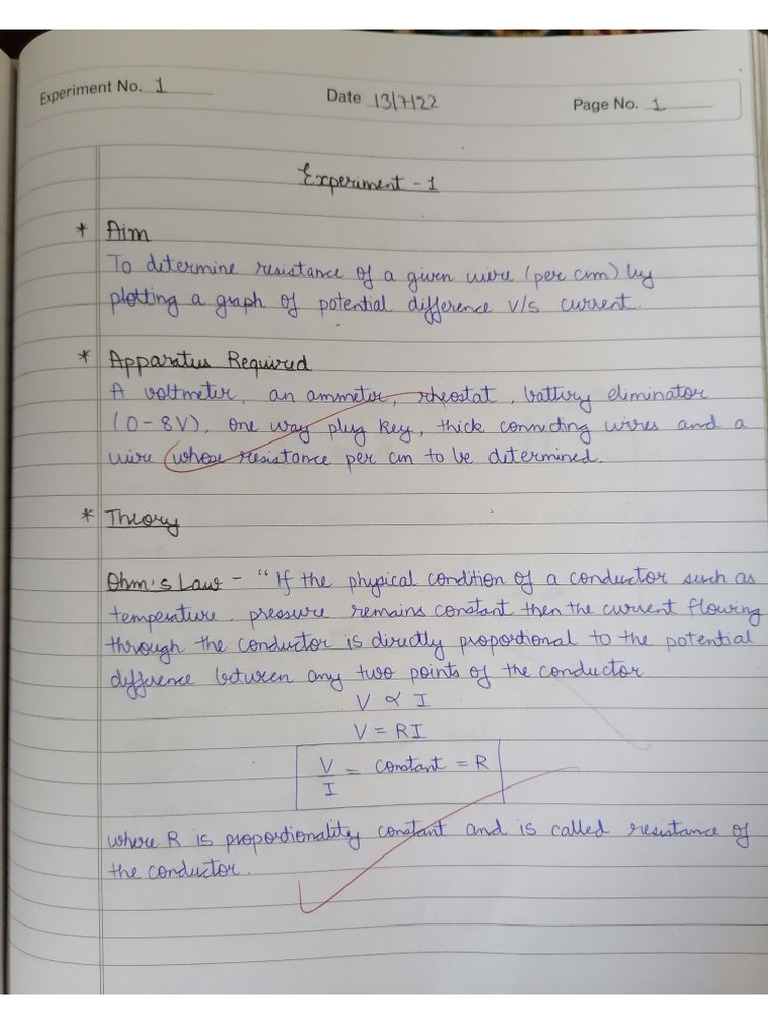 Experiment No. 1
Date 13/7/22
Page No. 1
Experiment - 1
* Aim
To determine resistance of a given wire (per cm) by
plotting a graph of potential difference v/s current.
* Apparatus Required
A voltmeter, an ammeter, rheostat, battery eliminator
(0-8V), one way plug key, thick connecting wires and a
wire whose resistance per cm to be determined.
* Theory
Ohm's Law - "If the physical condition of a conductor such as
temperature, pressure remains constant then the current flowing
through the conductor is directly proportional to the potential
difference between any two points of the conductor.
V ∝ I
V = RI
V/I = constant = R
where R is proportionality constant and is called resistance of
the conductor.